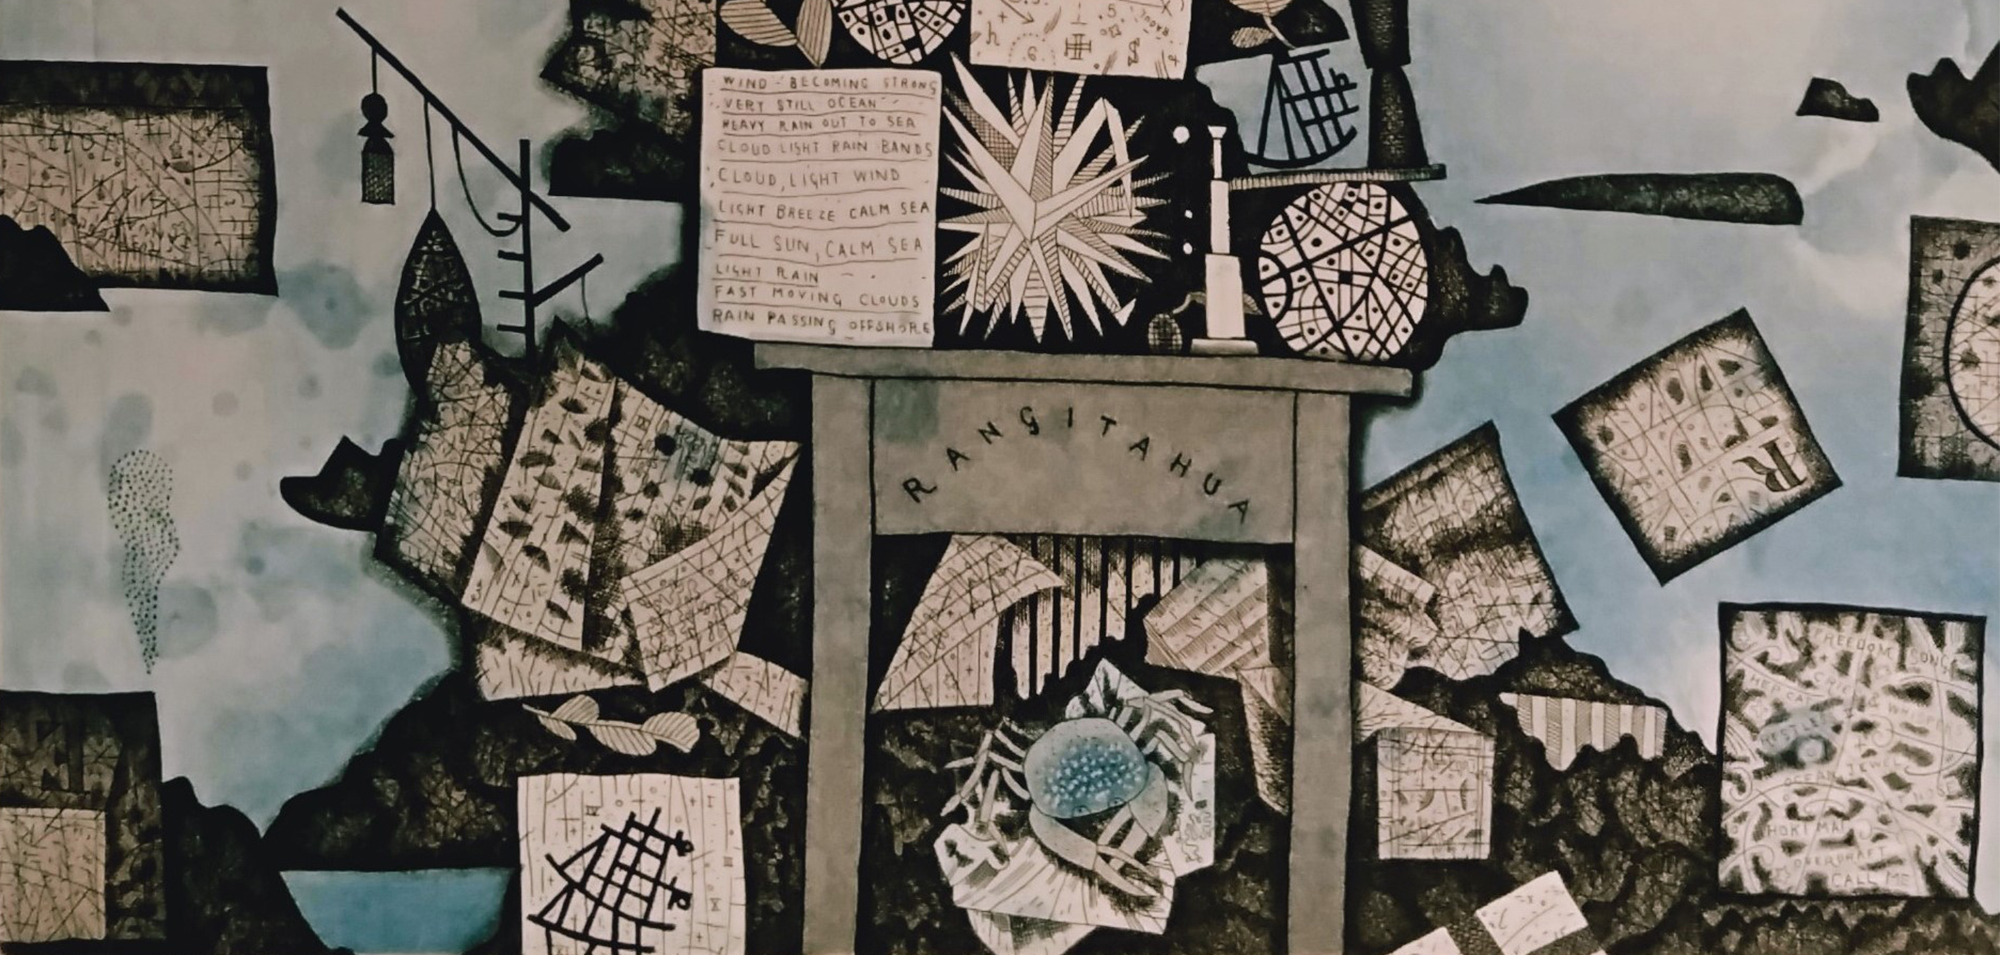 WIND - BECOMING STRONG
VERY STILL OCEAN
HEAVY RAIN OUT TO SEA
CLOUD LIGHT RAIN BANDS
CLOUD, LIGHT WIND
LIGHT BREEZE CALM SEA
FULL SUN, CALM SEA
LIGHT RAIN
FAST MOVING CLOUDS
RAIN PASSING OFFSHORE
RANGITAHUA
R
FREEDOM SONG
OCEAN
HOKI MAI
OVERDRAFT
CALL ME